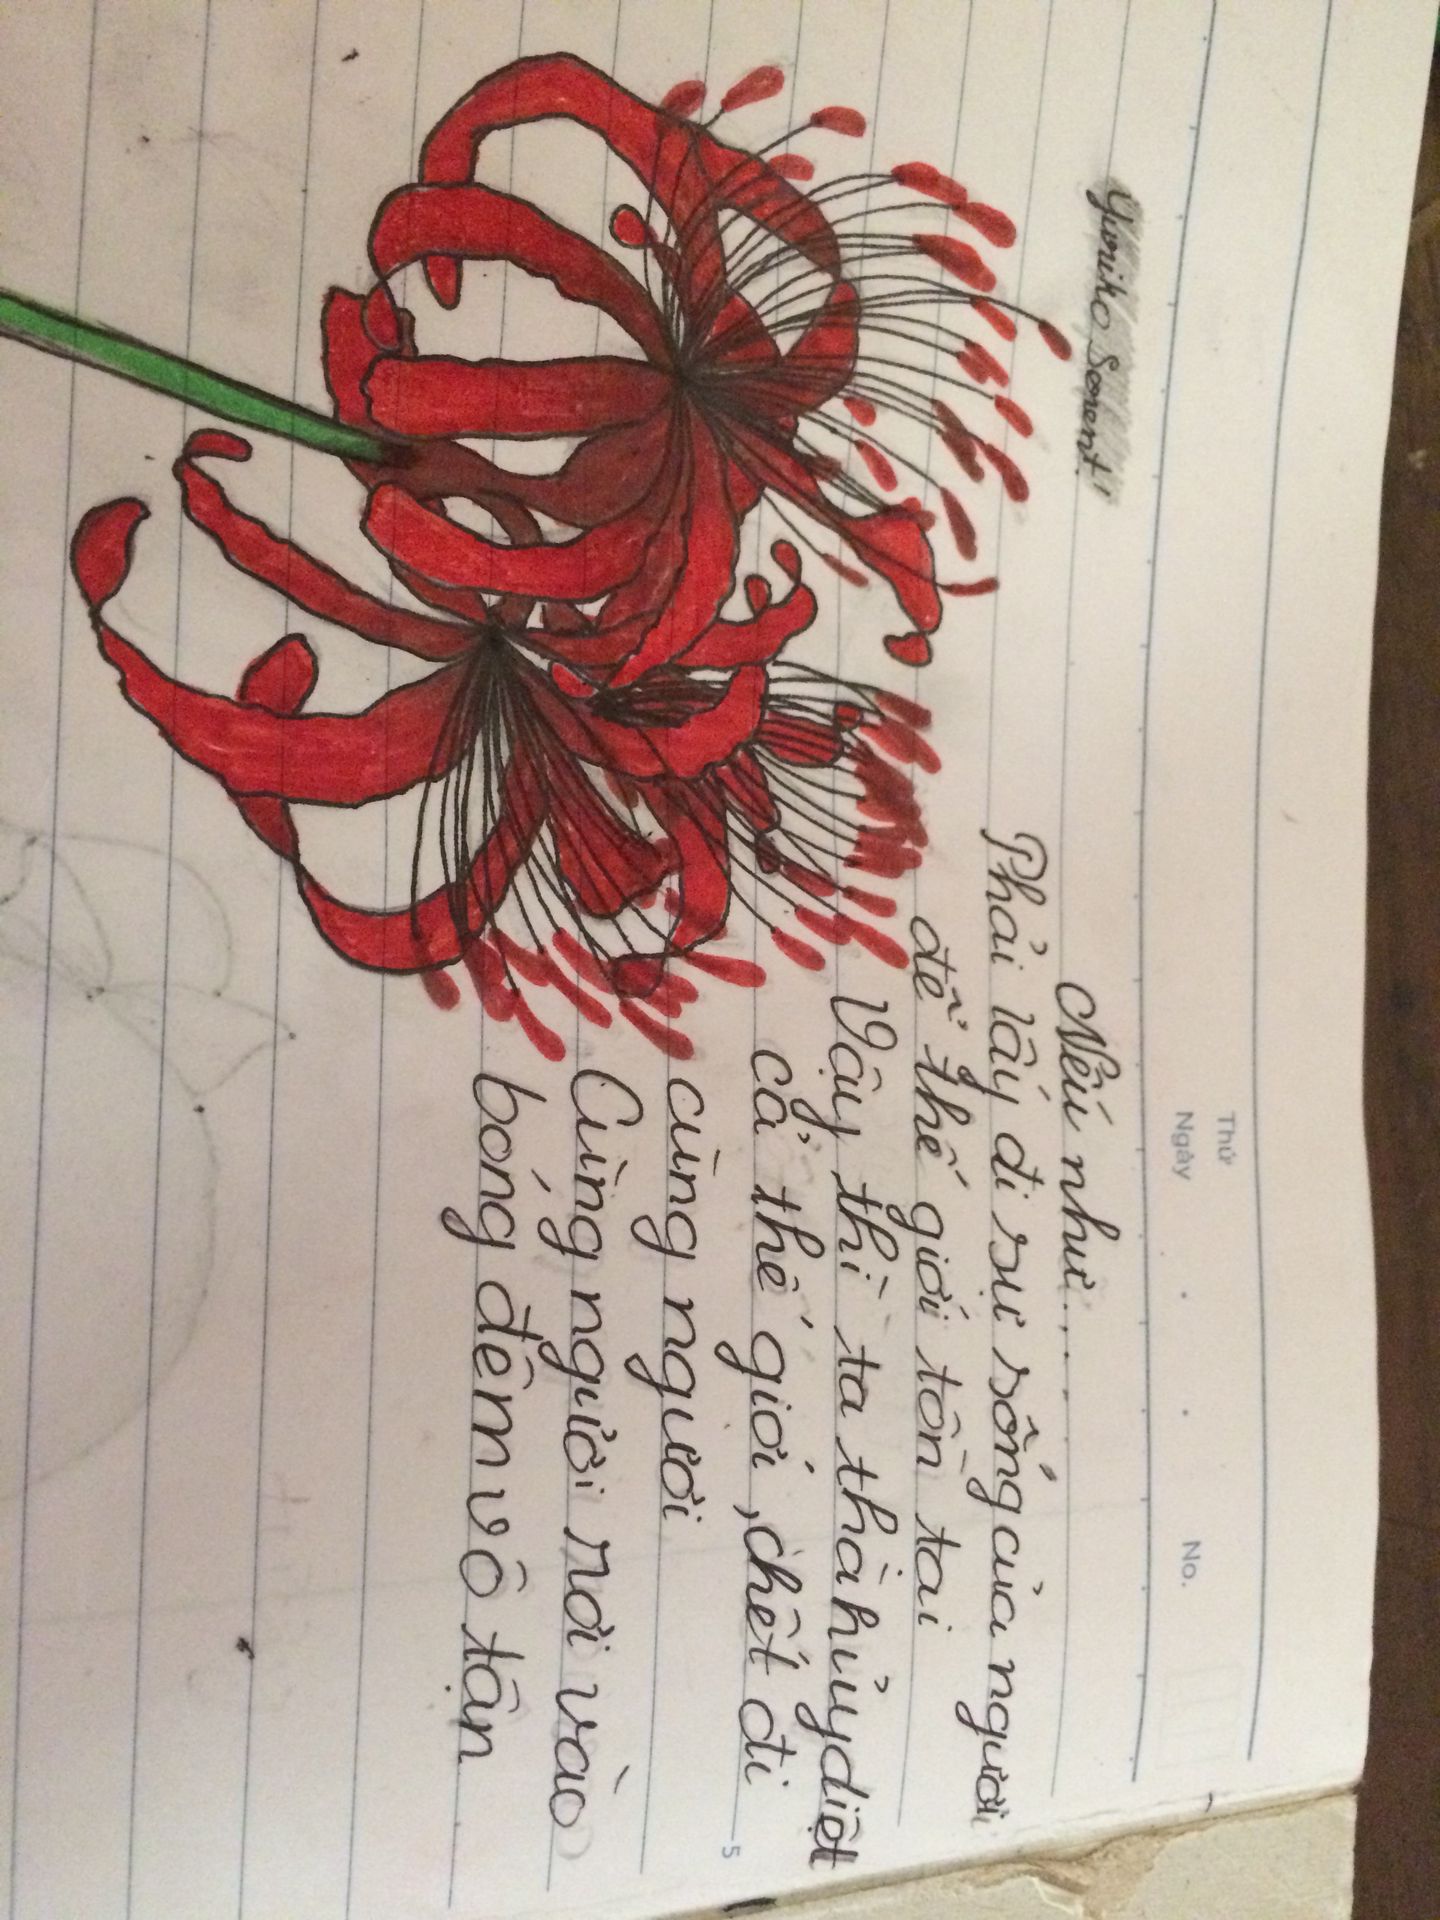 Thứ
Ngày
No.
Yuriko Sorenti
Nếu như....
Phải lấy đi sự sống của người
để thế giới tồn tai
Vậy thì ta thà hủy diệt
cả thế giới, chết đi
cùng người
Cùng người rơi vào
bóng đêm vô tận
5